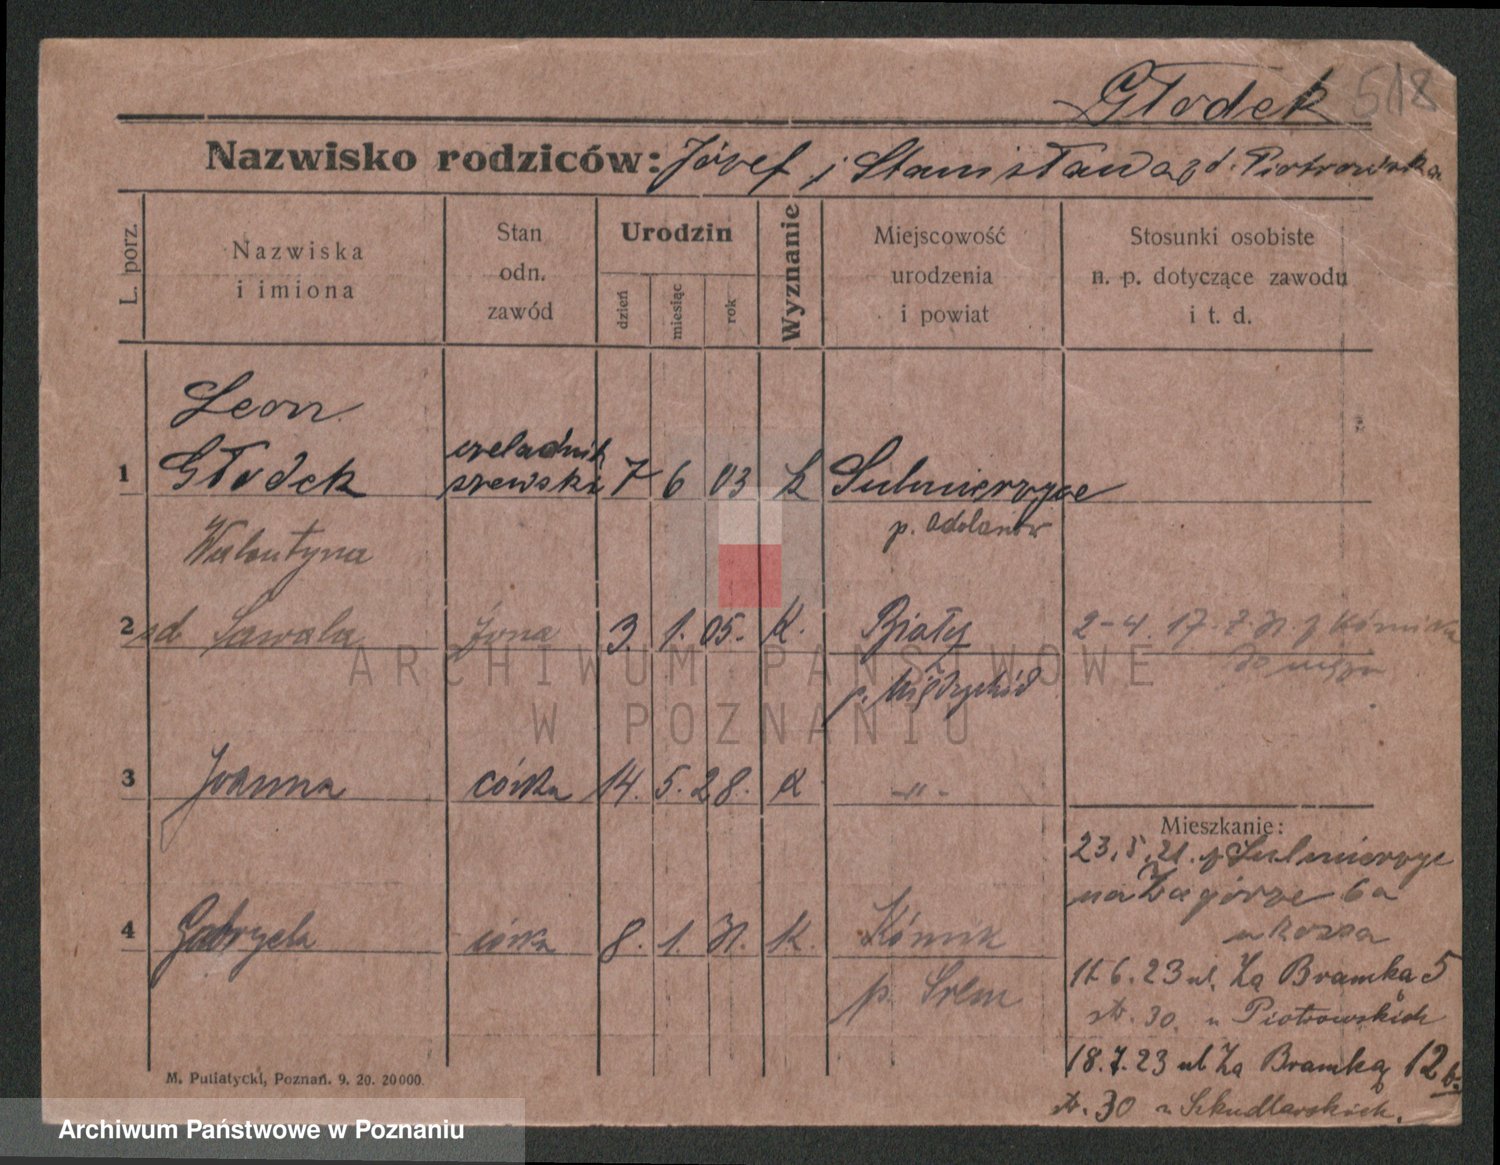 Głodek 518
Nazwisko rodziców: Józef i Stanisława z d. Piotrowska
L. porz.
Nazwiska
i imiona
Stan
odn.
zawód
Urodzin
dzień
miesiąc
rok
Wyznanie
Miejscowość
urodzenia
i powiat
Stosunki osobiste
n. p. dotyczące zawodu
i t. d.
Leon
1 Głodek czeladnik szewski 7 6 03 k Sulmierzyce
p. Adolanów
Walentyna
2 zd Sawala żona 3. 1. 05. K. Biały
p. Międzychód
2-4. 17. z Kórnika
do męża
3 Joanna córka 14. 5. 28. K -"-
4 Gabryela córka 8. 1. 31. K. Kórnik
p. Śrem
Mieszkanie:
23.5.21. z Sulmierzyc
na Zagórze 6a
u
11.6.23 ul. Za Bramką 5
str. 30. u Piotrowskich
18.7.23 ul Za Bramką 12b.
str. 30 u Szkudlarskich.
M. Putiatycki, Poznań. 9. 20. 20000.
ARCHIWUM PAŃSTWOWE
W POZNANIU
Archiwum Państwowe w Poznaniu